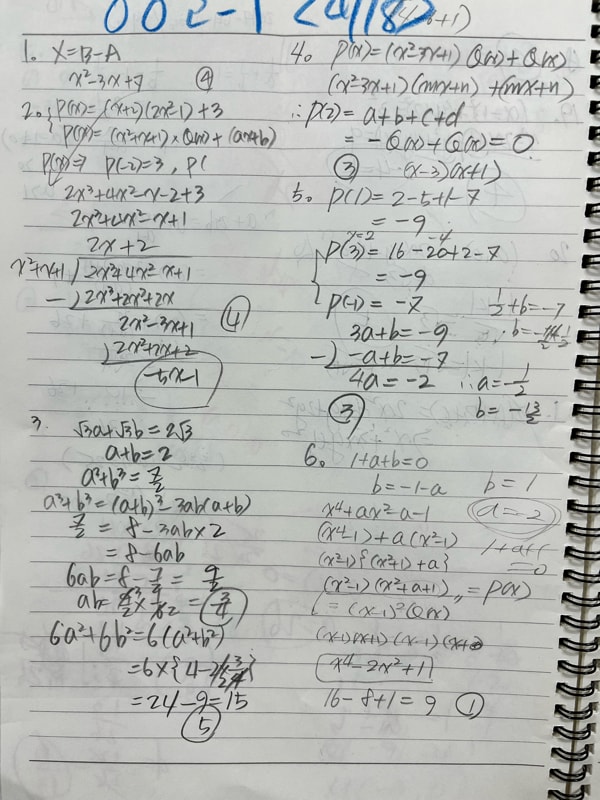 002-1 <4/18>
1. X=B-A
x²-3x+7 ④
2. P(x)=(x+2)(2x²-1)+3
P(x)=(x²+x+1)×Q(x)+(ax+b)
P(x)⇒ P(-2)=3, P(
2x³+4x²-x-2+3
2x³+4x²-x+1
2x+2
x²+x+1 ) 2x³+4x²-x+1
-) 2x³+2x²+2x
2x²-3x+1
) 2x²+2x+2
-5x-1
④
3.
√3a+√3b=2√3
a+b=2
a³+b³=7/2
a³+b³=(a+b)³-3ab(a+b)
7/2=8-3ab×2
=8-6ab
6ab=8-7/2=9/2
ab= 3/4
6a²+6b²=6(a²+b²)
=24-9=15
⑤
4. P(x)=(x²-3x+1)Q(x)+Q(x)
(x²-3x+1)(mx+n)+(mx+n)
∴P(2)=a+b+c+d
=-Q(x)+Q(x)=0
③ (x-3)(x+1)
5. P(1)=2-5+1-7
=-9
=-9
P(-1)=-7
3a+b=-9
-) -a+b=-7
4a=-2 ∴a=-1/2
③
6. 1+a+b=0
b=-1-a
b=1
a=-2
x⁴+ax²-a-1
(x⁴-1)+a(x²-1)
(x²-1){(x²+1)+a}
(x²-1)(x²+a+1) =P(x)
=(x-1)²Q(x)
x⁴-2x²+1
16-8+1=9 ①